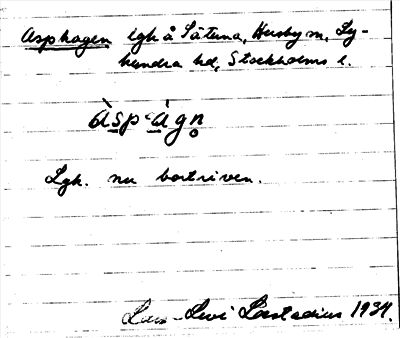 Asphagen lgh å Sätuna, Husby sn, Ly-
hundra hd, Stockholms l.
àspàgn̥
Lgh. nu bortriven.
Lars-Levi Læstadius 1934.